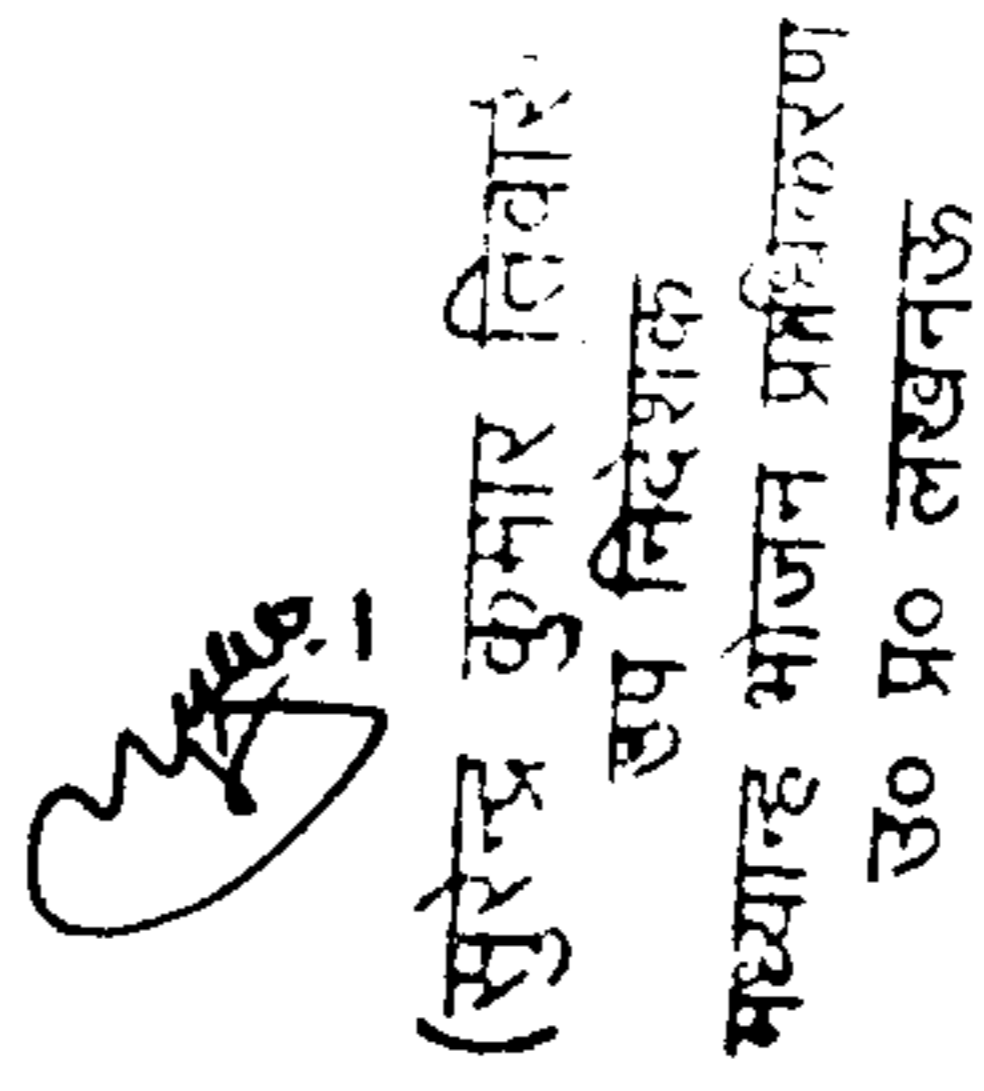 (सुरेन्द्र कुमार तिवारी
उप निदेशक
मध्यान्ह भोजन प्राधिकरण
उ० प्र० लखनऊ